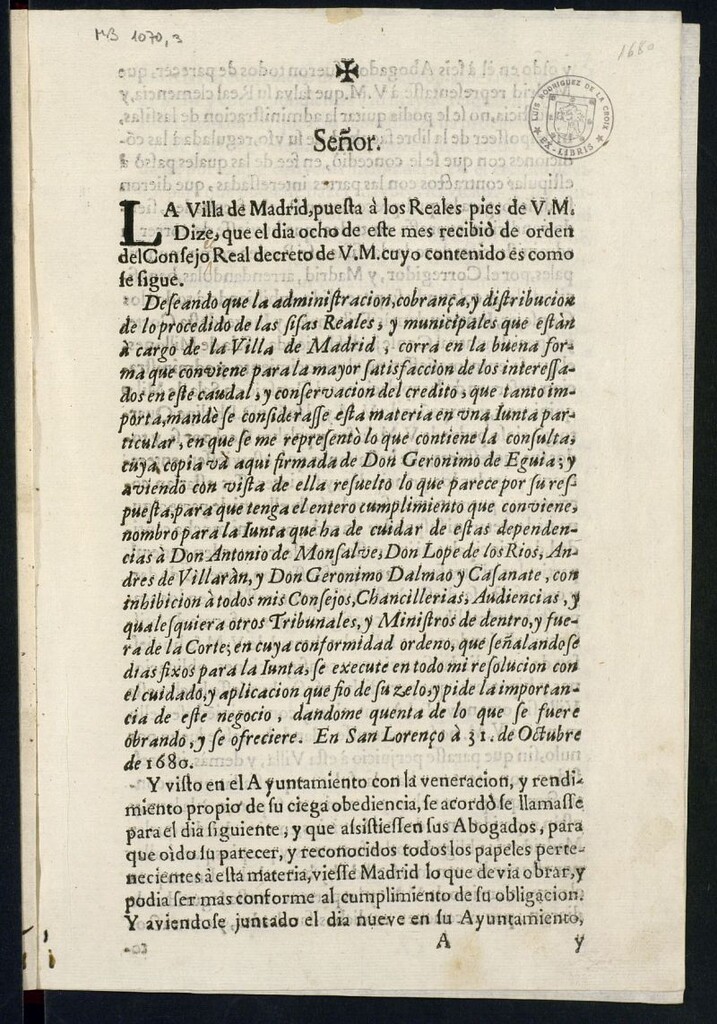 MB 1070, 3
1680
LUIS RODRIGUEZ DE LA CROIX
EX-LIBRIS
✠
Señor.
LA Villa de Madrid, puesta à los Reales pies de V.M.
Dize, que el dia ocho de este mes recibiò de orden
del Consejo Real decreto de V.M. cuyo contenido es como
se sigue.
Deseando que la administracion, cobrança, y distribucion
de lo procedido de las sisas Reales, y municipales que estàn
à cargo de la Villa de Madrid, corra en la buena for-
ma que conviene para la mayor satisfaccion de los interessa-
dos en este caudal, y conservacion del credito, que tanto im-
porta, mandè se considerasse esta materia en vna Iunta par-
ticular, en que se me representò lo que contiene la consulta,
cuya copia và aqui firmada de Don Geronimo de Eguia; y
aviendo con vista de ella resuelto lo que parece por su res-
puesta, para que tenga el entero cumplimiento que conviene,
nombro para la Iunta que ha de cuidar de estas dependen-
cias à Don Antonio de Monsalve, Don Lope de los Rios, An-
dres de Villaràn, y Don Geronimo Dalmao y Casanate, con
inhibicion à todos mis Consejos, Chancillerias, Audiencias, y
qualesquiera otros Tribunales, y Ministros de dentro, y fue-
ra de la Corte; en cuya conformidad ordeno, que señalandose
dias fixos para la Iunta, se execute en todo mi resolucion con
el cuidado, y aplicacion que fio de su zelo, y pide la importan-
cia de este negocio, dandome quenta de lo que se fuere
obrando, y se ofreciere. En San Lorenço à 31. de Octubre
de 1680.
Y visto en el Ayuntamiento con la veneracion, y rendi-
miento propio de su ciega obediencia, se acordò se llamasse
para el dia siguiente, y que assistiessen sus Abogados, para
que oìdo su parecer, y reconocidos todos los papeles perte-
necientes à esta materia, viesse Madrid lo que devia obrar, y
podia ser mas conforme al cumplimiento de su obligacion.
Y aviendose juntado el dia nueve en su Ayuntamiento,
A y